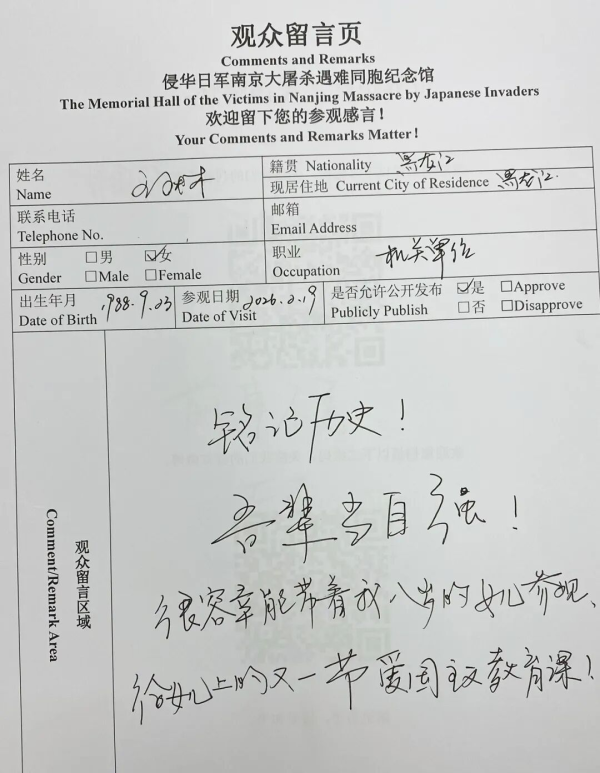 观众留言页
Comments and Remarks
侵华日军南京大屠杀遇难同胞纪念馆
The Memorial Hall of the Victims in Nanjing Massacre by Japanese Invaders
欢迎留下您的参观感言！
Your Comments and Remarks Matter!
姓名
Name
籍贯 Nationality 黑龙江
现居住地 Current City of Residence 黑龙江
联系电话
Telephone No.
邮箱
Email Address
性别 □男 ☑女
Gender □Male □Female
职业
Occupation 机关单位
出生年月
Date of Birth 1988.9.23
参观日期
Date of Visit 2026.2.19
是否允许公开发布 ☑是 □Approve
Publicly Publish □否 □Disapprove
观众留言区域
Comment/Remark Area
铭记历史！
吾辈当自强！
很容幸能带着我八岁的女儿参观、
给女儿上的又一节爱国主义教育课！